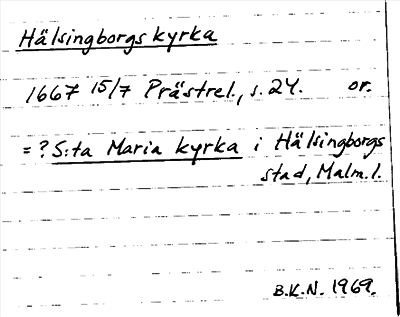 Hälsingborgs kyrka
1667 15/7 Prästrel., s. 24. or.
= ? S:ta Maria kyrka i Hälsingborgs
stad, Malm. l.
B.K.N. 1969.